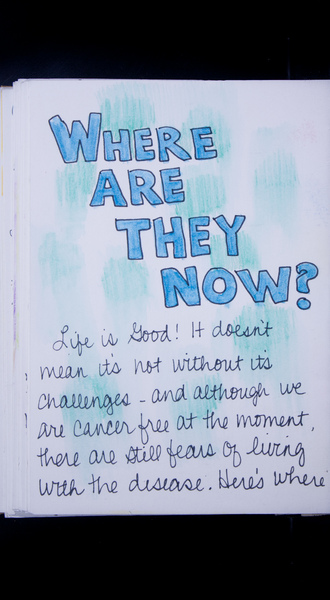 WHERE
ARE
THEY
NOW?
Life is Good! It doesn't
mean it's not without its
challenges - and although we
are cancer free at the moment,
there are still fears of living
with the disease. Here's where